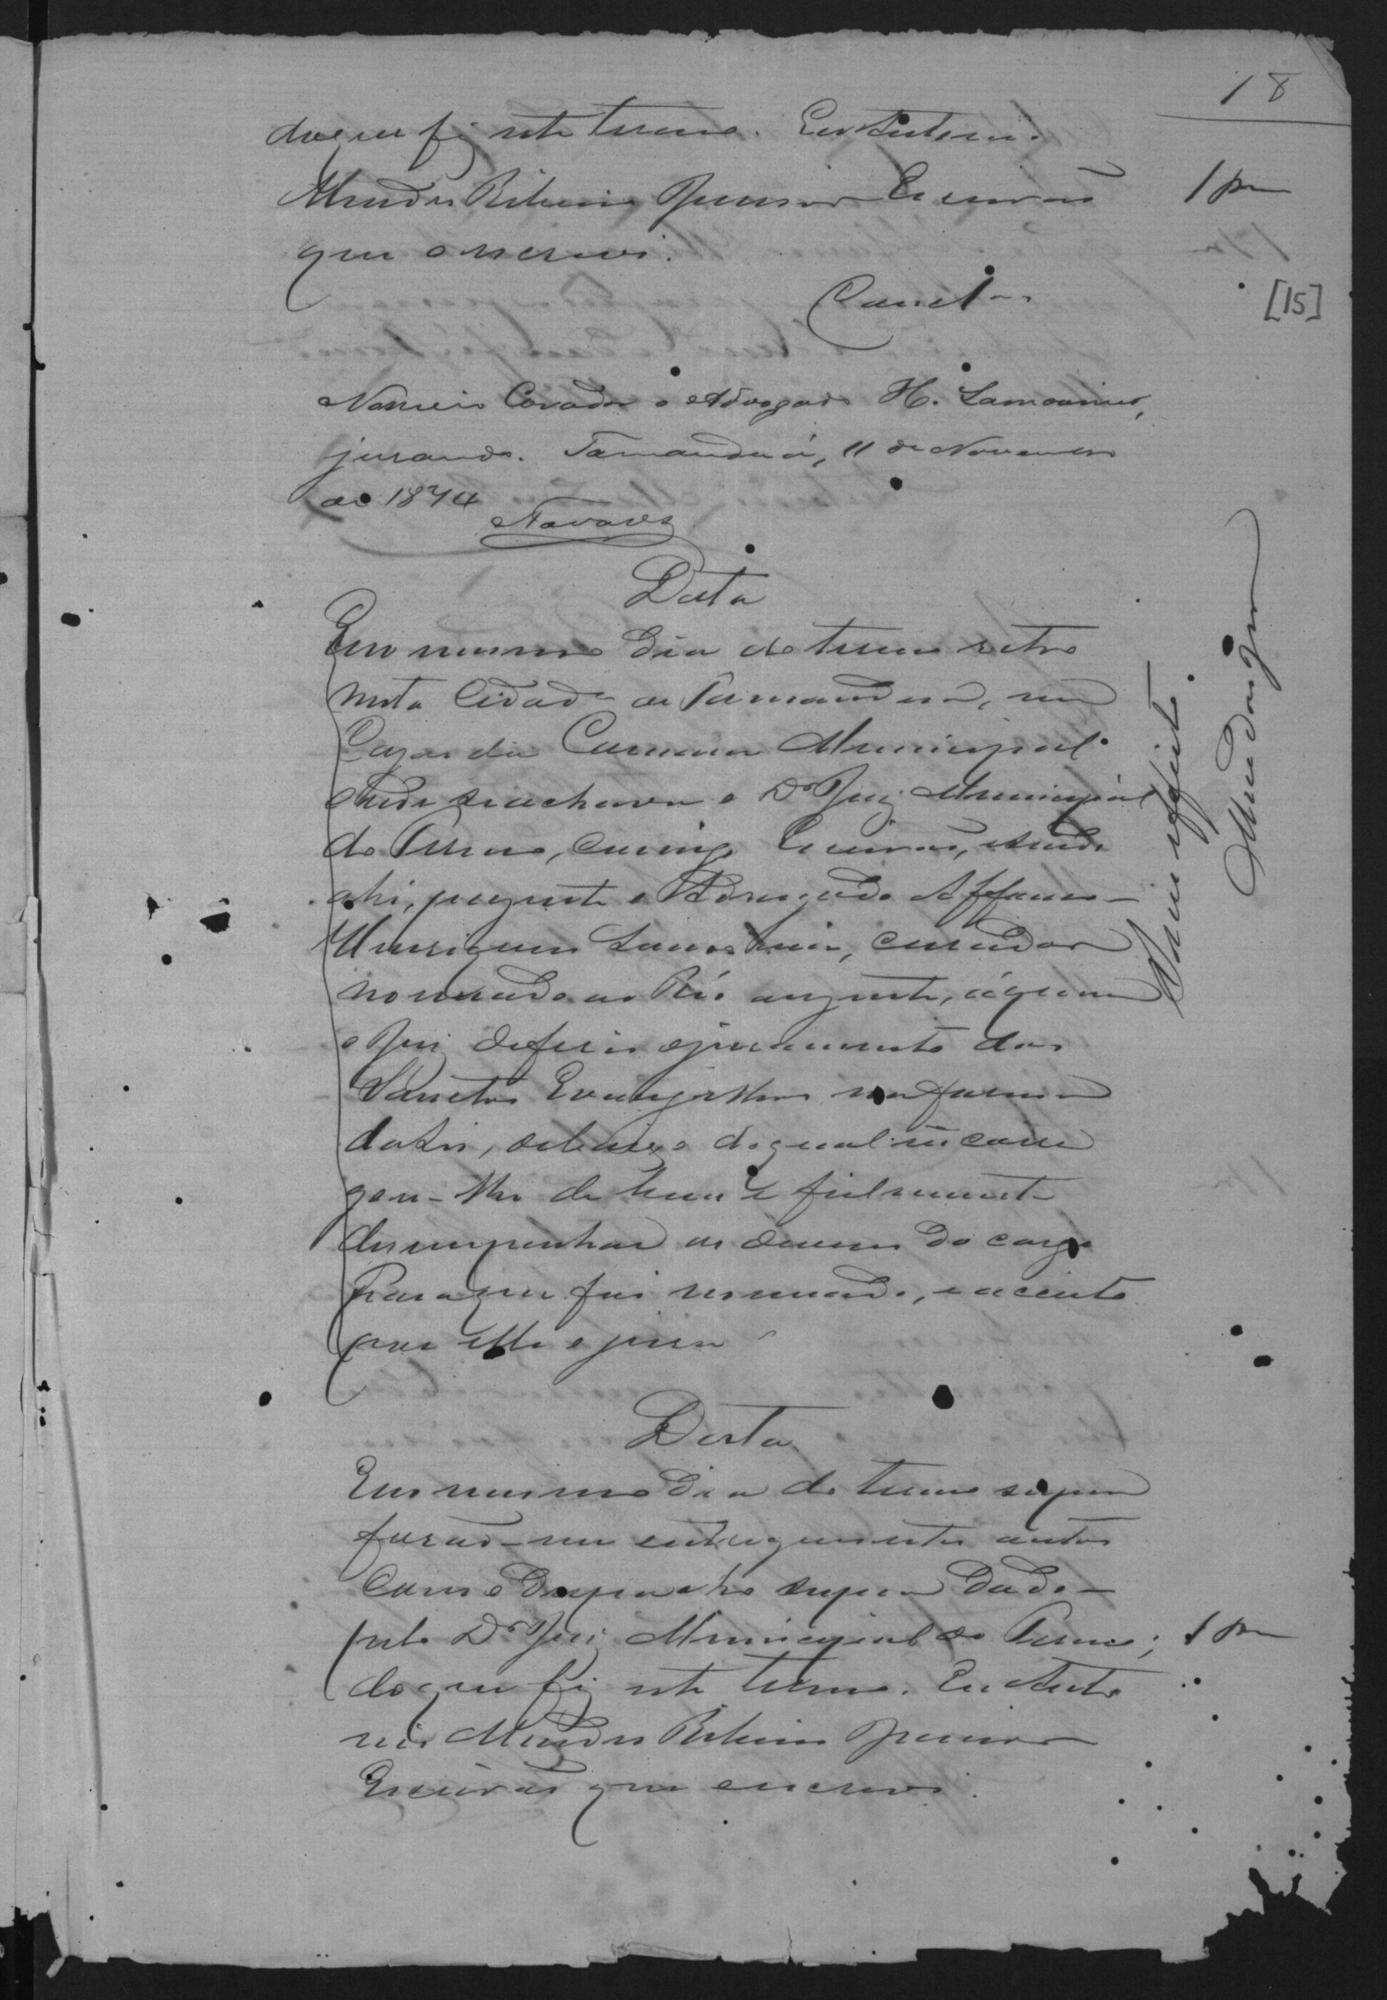 18
do que fiz este termo. Eu Antonio
Mendes Ribeiro Junior Escrivão
que o escrevi.
1 pm
[15]
Nomeio Curador o Advogado H. Lamounier,
jurando. Tamanduá, 11 de Novembro
de 1874
Navarro
Data
Em o mesmo dia do termo retro
nesta Cidade de Tamanduá, na
Caza da Camara Municipal
onde se achava o Dr Juiz Municipal
do Termo, comigo Escrivão, sendo
ahi, prezente o Advogado Affonso
Henriques Lamounier, curador
nomeado ao Réo auzente, á quem
o Juiz deferio o juramento dos
Sanctos Evangelhos na forma
da Lei, debaixo do qual incarre
gou-lhe de bem e fielmente
desempenhar os deveres do cargo
para que foi nomeado, e acceito
por elle o jura
Sem effeito.
Mendes Jnor
Data
Em o mesmo dia do termo supra
forão-me entregues estes autos
com o despacho supra dado
pelo Dr Juiz Municipal do Termo;
1 pm
do que fiz este termo. Eu Anto
nio Mendes Ribeiro Junior
Escrivão que escrevi.